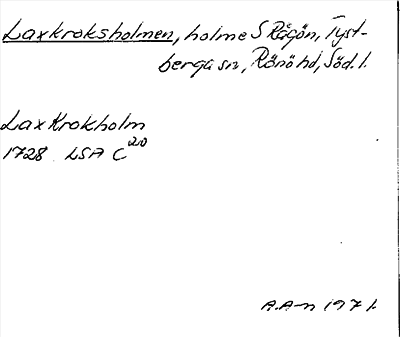 Laxkroksholmen, holme S Rågön, Tyst-
berga sn, Rönö hd, Söd. l.
LaxKrokholm
1728 LSA C 20
A.A-n 1971.